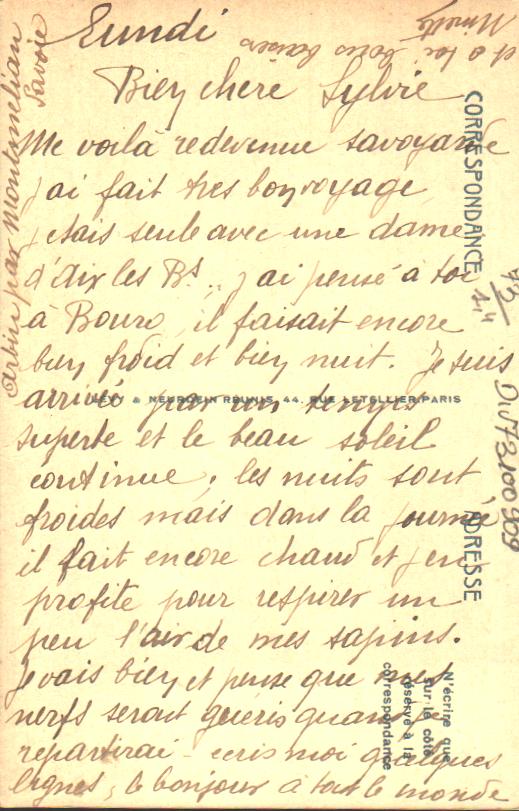 Lundi
Bien chère Sylvie
Me voilà redevenue savoyarde
j'ai fait très bon voyage
j'étais seule avec une dame
d'Aix les Bs.. j'ai pensé à toi
à Bourg, il faisait encore
bien froid et bien nuit. Je suis
arrivée par un temps
superbe et le beau soleil
continue, les nuits sont
froides mais dans la journée
il fait encore chaud et j'en
profite pour respirer un
peu l'air de mes sapins.
Je vais bien et pense que mes
nerfs seront guéris quand je
repartirai - écris moi quelques
lignes, le bonjour à tout le monde
et à toi bons baisers
Minette
Arbin par Montmelian
Savoie
CORRESPONDANCE
ADRESSE
LÉVY & NEURDEIN RÉUNIS, 44, RUE LETELLIER, PARIS
N'écrire que
sur le côté
réservé à la
correspondance